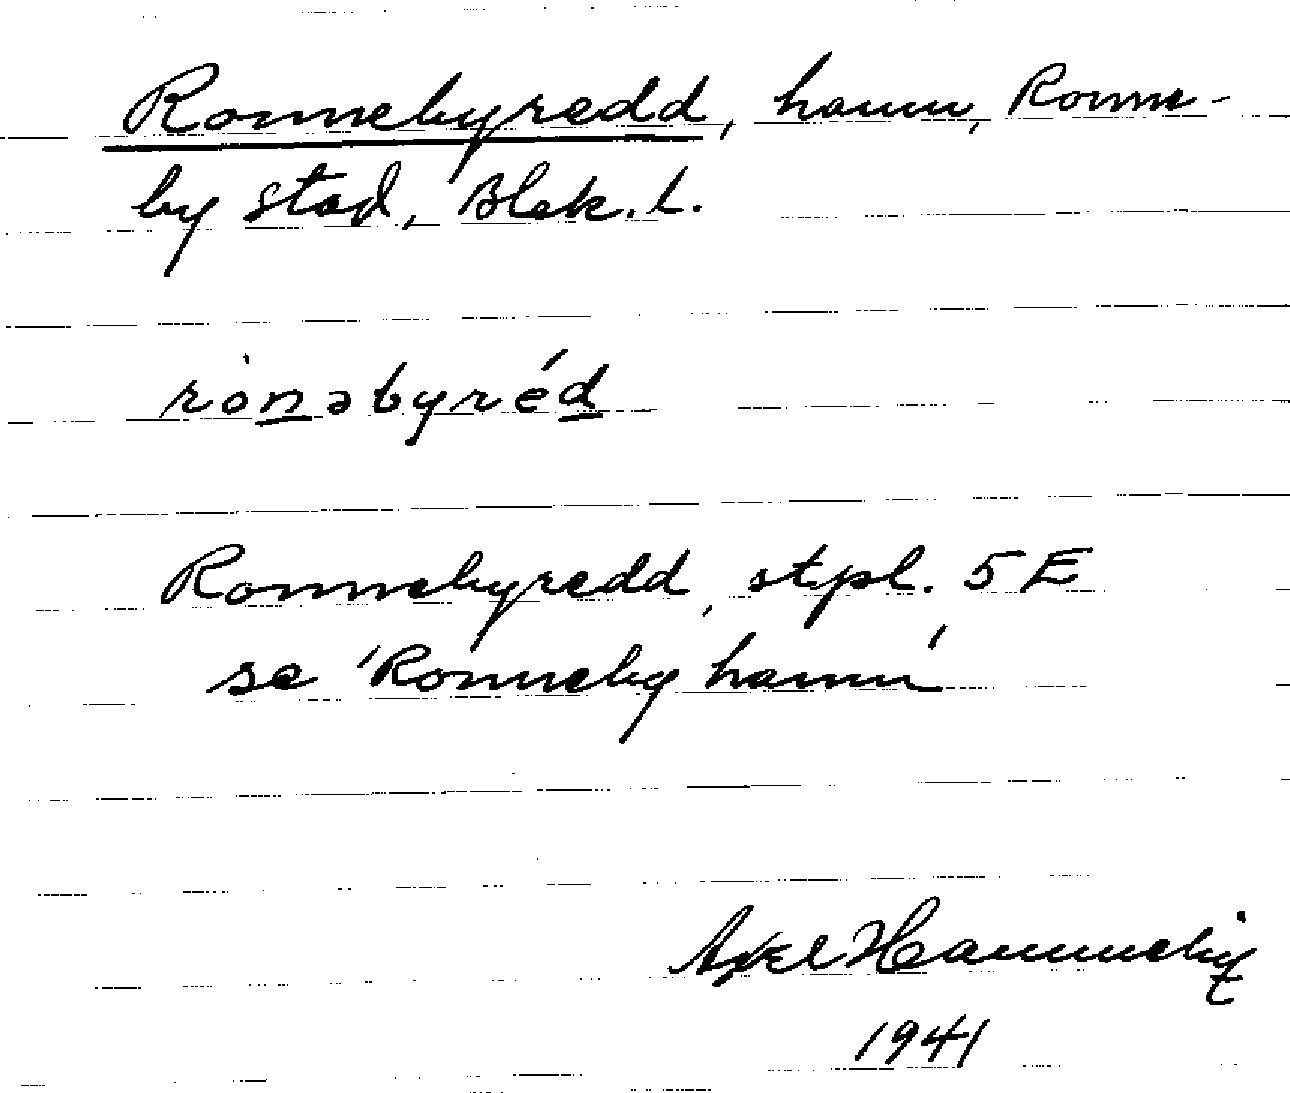 Ronnebyredd, hamn, Ronne-
by stad, Blek. l.
rònəbyréd
Ronnebyredd, stpl. 5 E
se 'Ronneby hamn'
Axel
1941